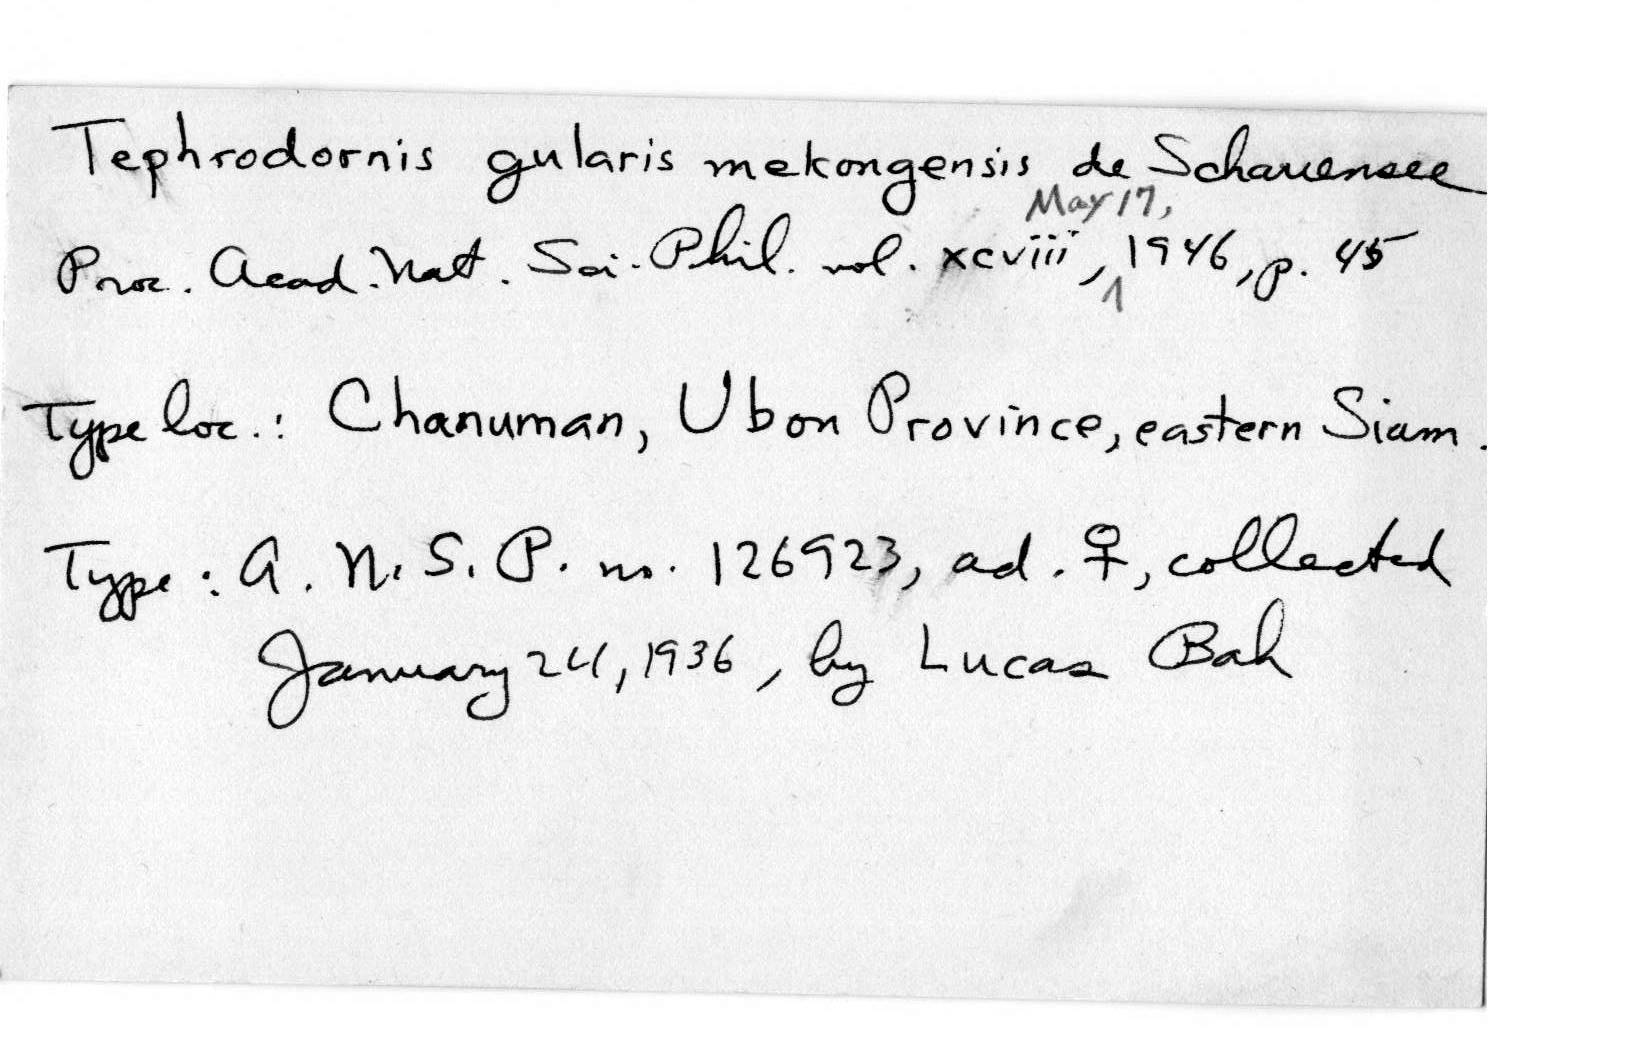 Tephrodornis gularis mekongensis de Schauensee
Proc. Acad. Nat. Sci. Phil. vol. xcviii, May 17, 1946, p. 45
Type loc.: Chanuman, Ubon Province, eastern Siam.
Type: A. N. S. P. no. 126923, ad. ♀, collected
January 24, 1936, by Lucas Bah